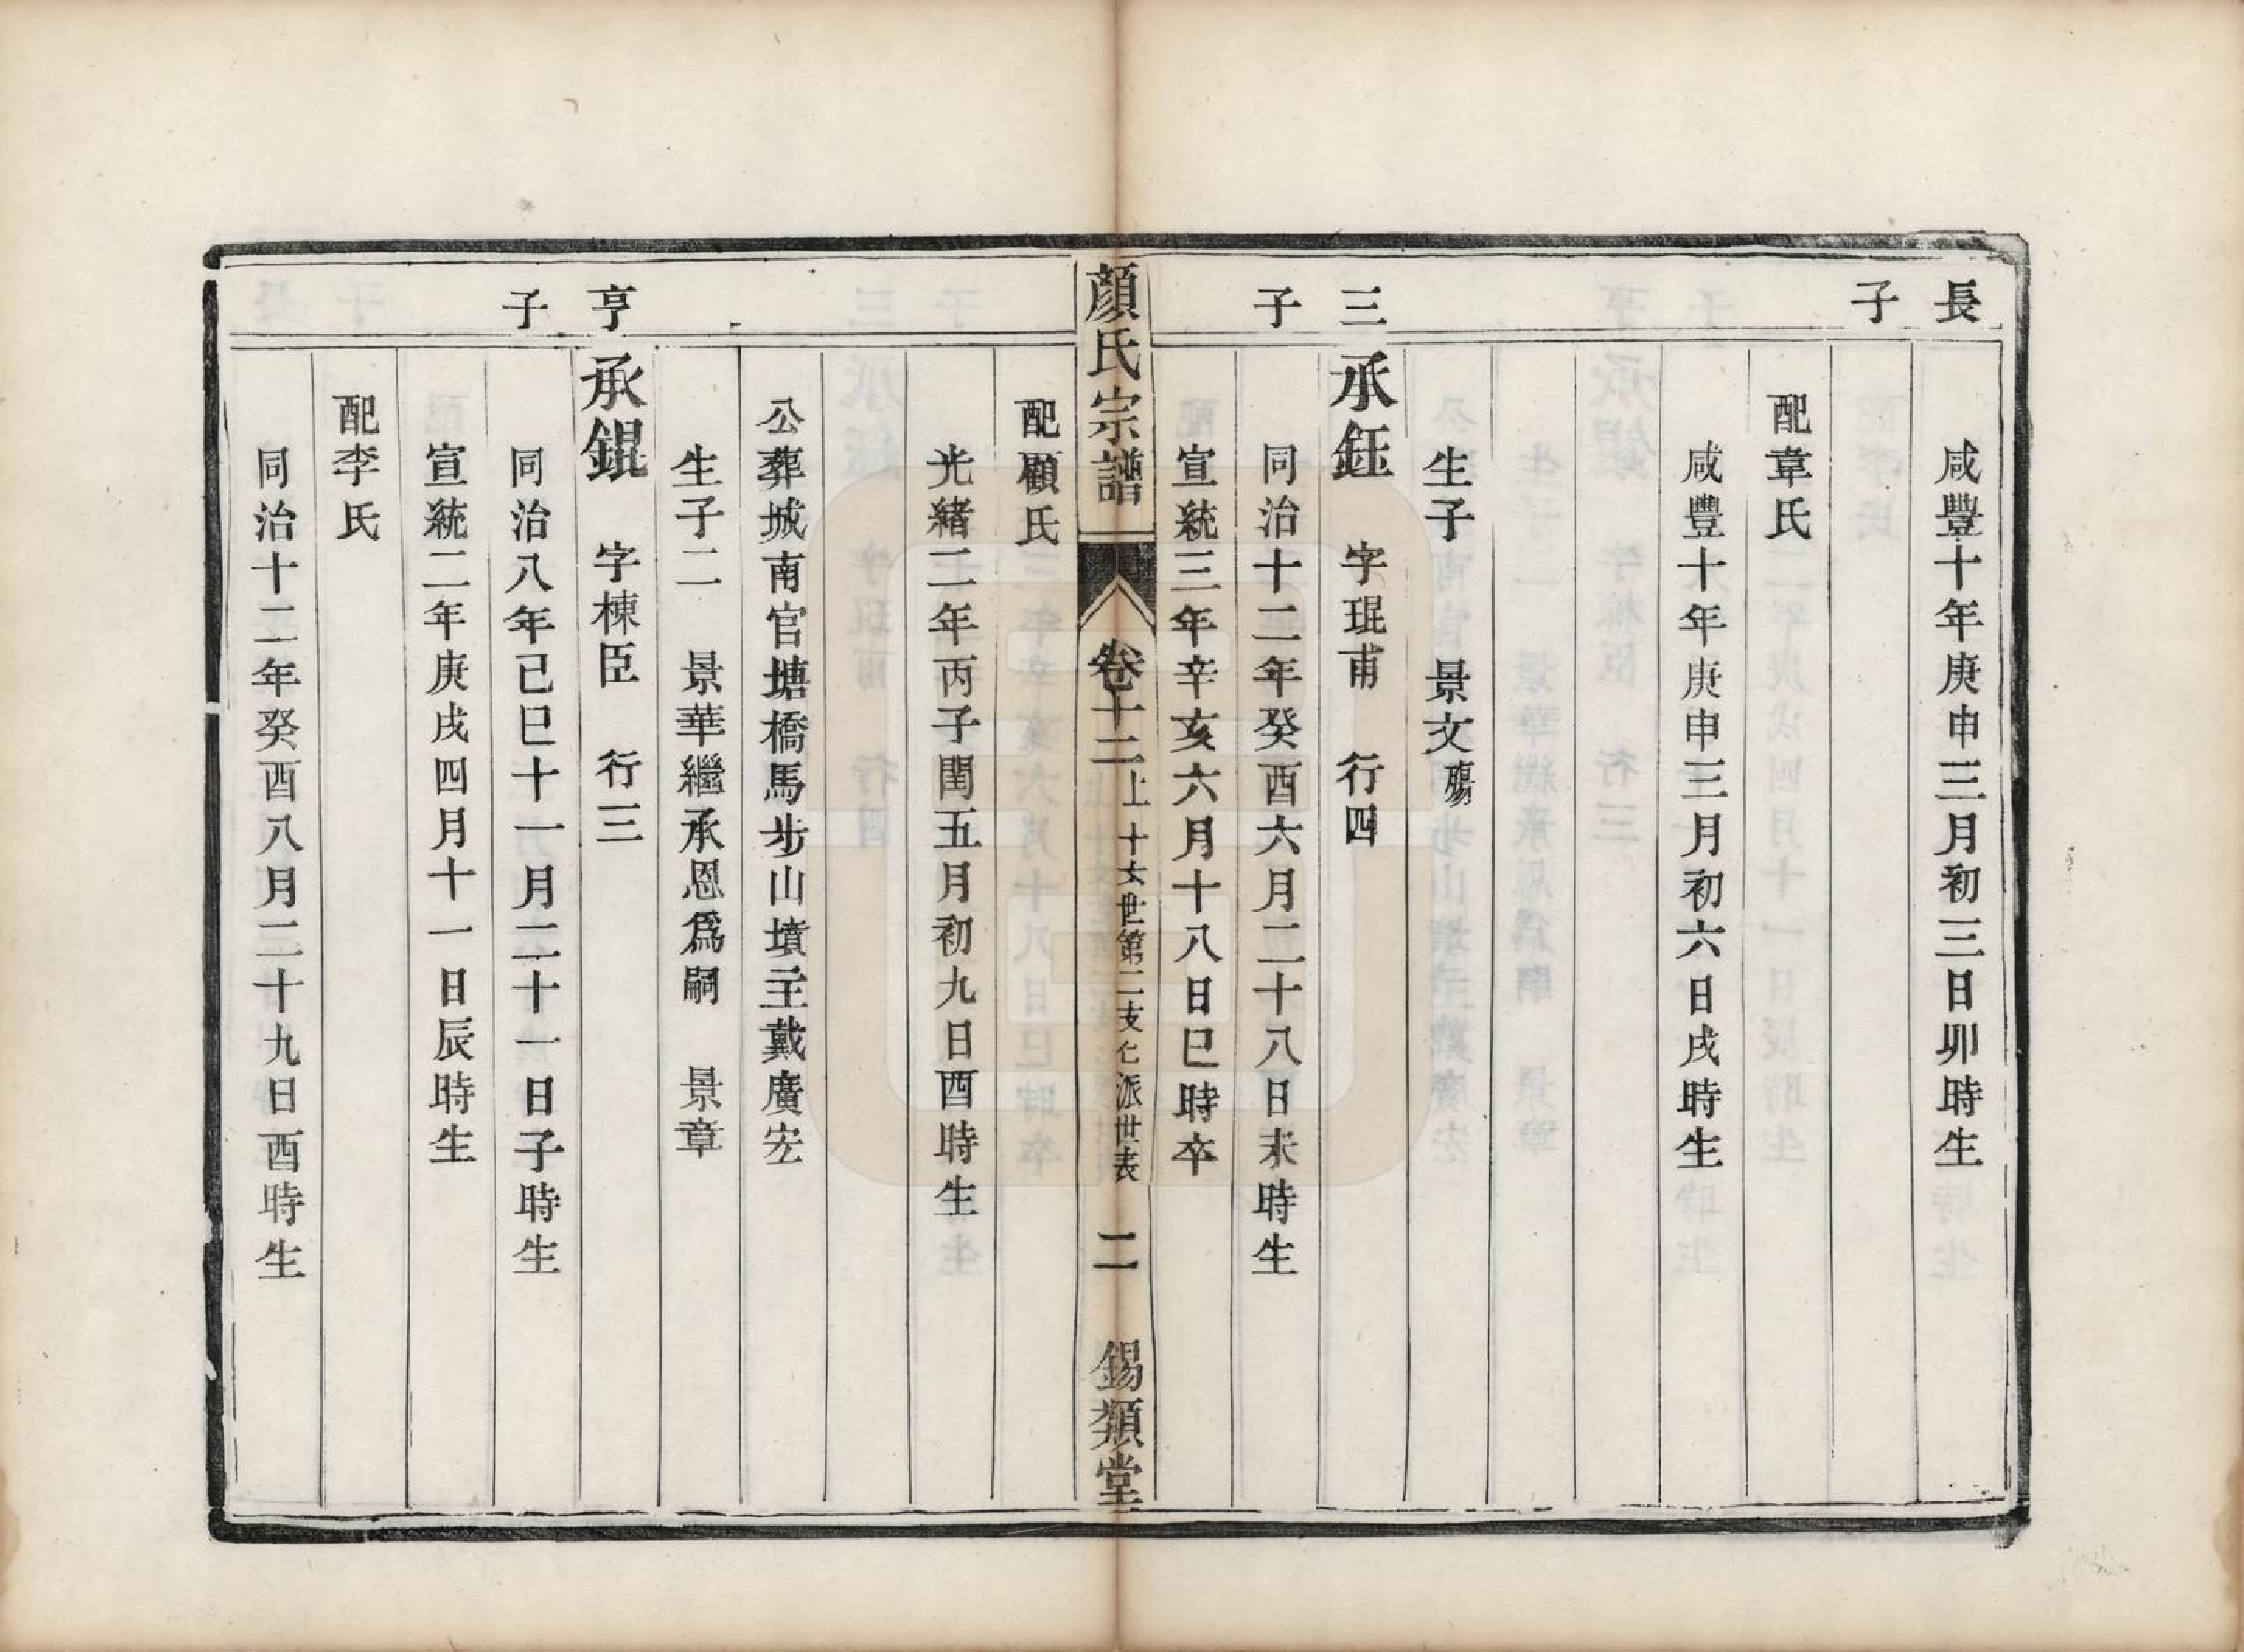 長子
咸豐十年庚申三月初三日卯時生
配章氏
咸豐十年庚申三月初六日戌時生
生子　景文殤
三子
承鈺　字琨甫　行四
同治十二年癸酉六月二十八日未時生
宣統三年辛亥六月十八日巳時卒
顏氏宗譜　卷十二上　十六世第二支七派世表　二　錫類堂
配顧氏
光緒二年丙子閏五月初九日酉時生
公葬城南官塘橋馬步山墳主戴廣宏
生子二　景華繼承恩爲嗣　景章
亨子
承錕　字棟臣　行三
同治八年己巳十一月二十一日子時生
宣統二年庚戌四月十一日辰時生
配李氏
同治十二年癸酉八月二十九日酉時生